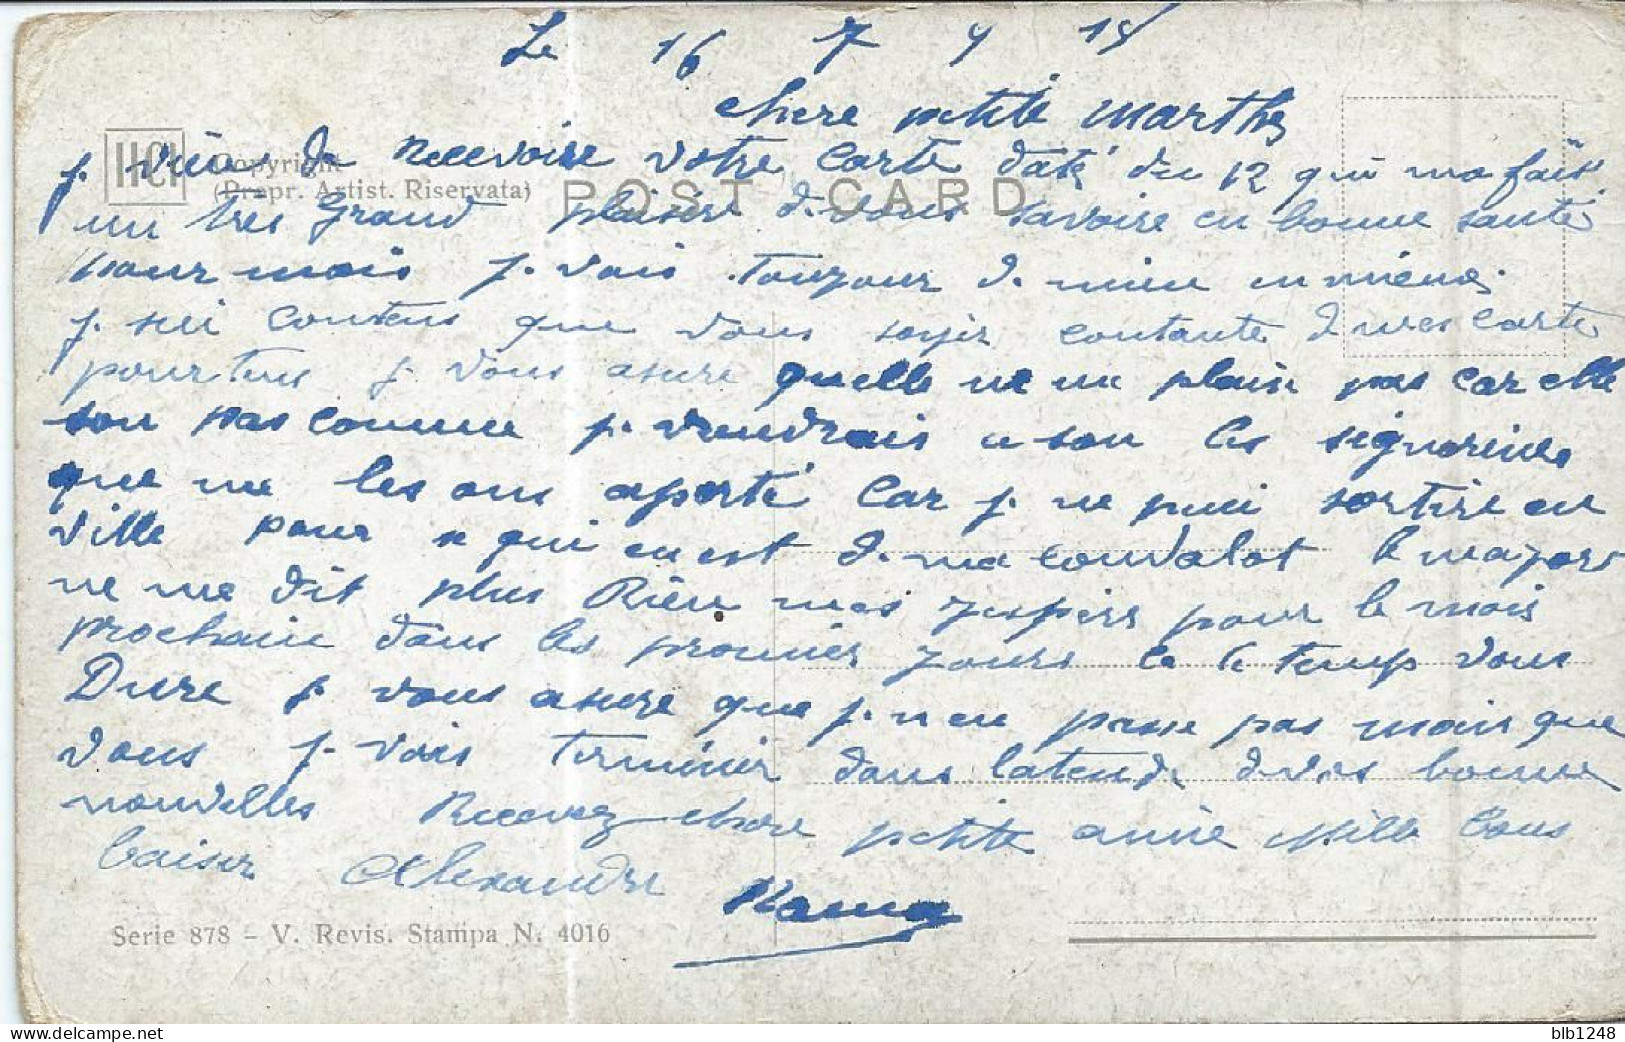 Le 16 7 9 18
chere petite Marthe
j. viens de recevoire votre carte daté du 12 qui ma fait
un tres grand plaisire de vous savoire en bonne santé
pour mois j. vais toujour de mieu en mieux
j. sui contens que vous soyier contante d mes carte
pourtens j. vous asure quelle ne me plaise pas car elle
son pas comme je vendrais ce son les signorines
que me les ons aporté car j. ne puis sortire en
ville pour a qui en est de ma convalot le major
ne me dit plus Rien mes jespère pour le mois
prochain dans les promier jours ce le temp vous
Dure j. vous asure que j. nen passe pas mais que
vous j. vais terminier dans latende de vos bonne
nouvelles Recevez chere petite amie Mille bons
baiser Alexandre
HCI
Copyright
(Propr. Artist. Riservata)
POST CARD
Serie 878 - V. Revis. Stampa N. 4016
blb1248